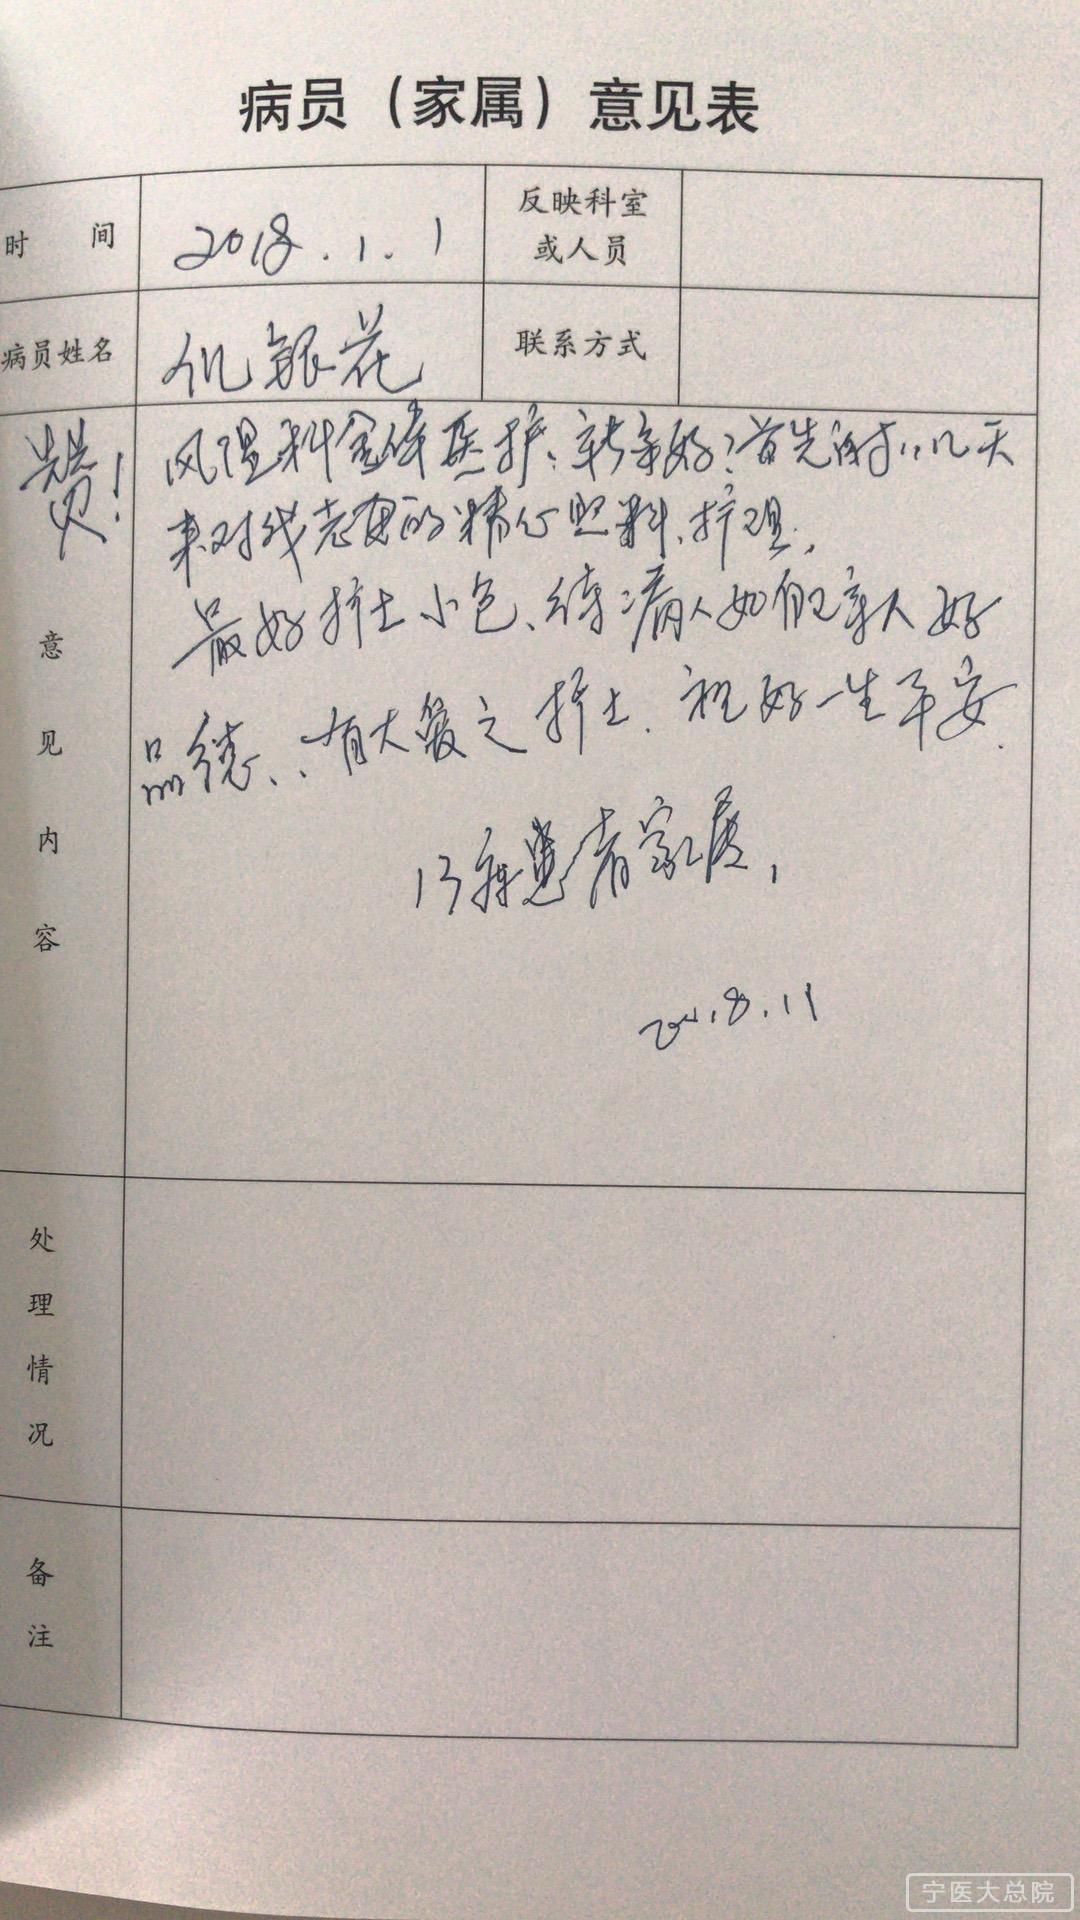 病员（家属）意见表
时 间 2018.1.1 反映科室或人员
病员姓名 仉银花 联系方式
赞！
风湿科全体医护、新年好！首先谢谢几天
来对我老母的精心照料、护理，
最好护士小包、待病人如似亲人 好
品德、有大爱之护士、祝好一生平安
意见内容
13床患者家属，
8.11
处理情况
备注
宁医大总院